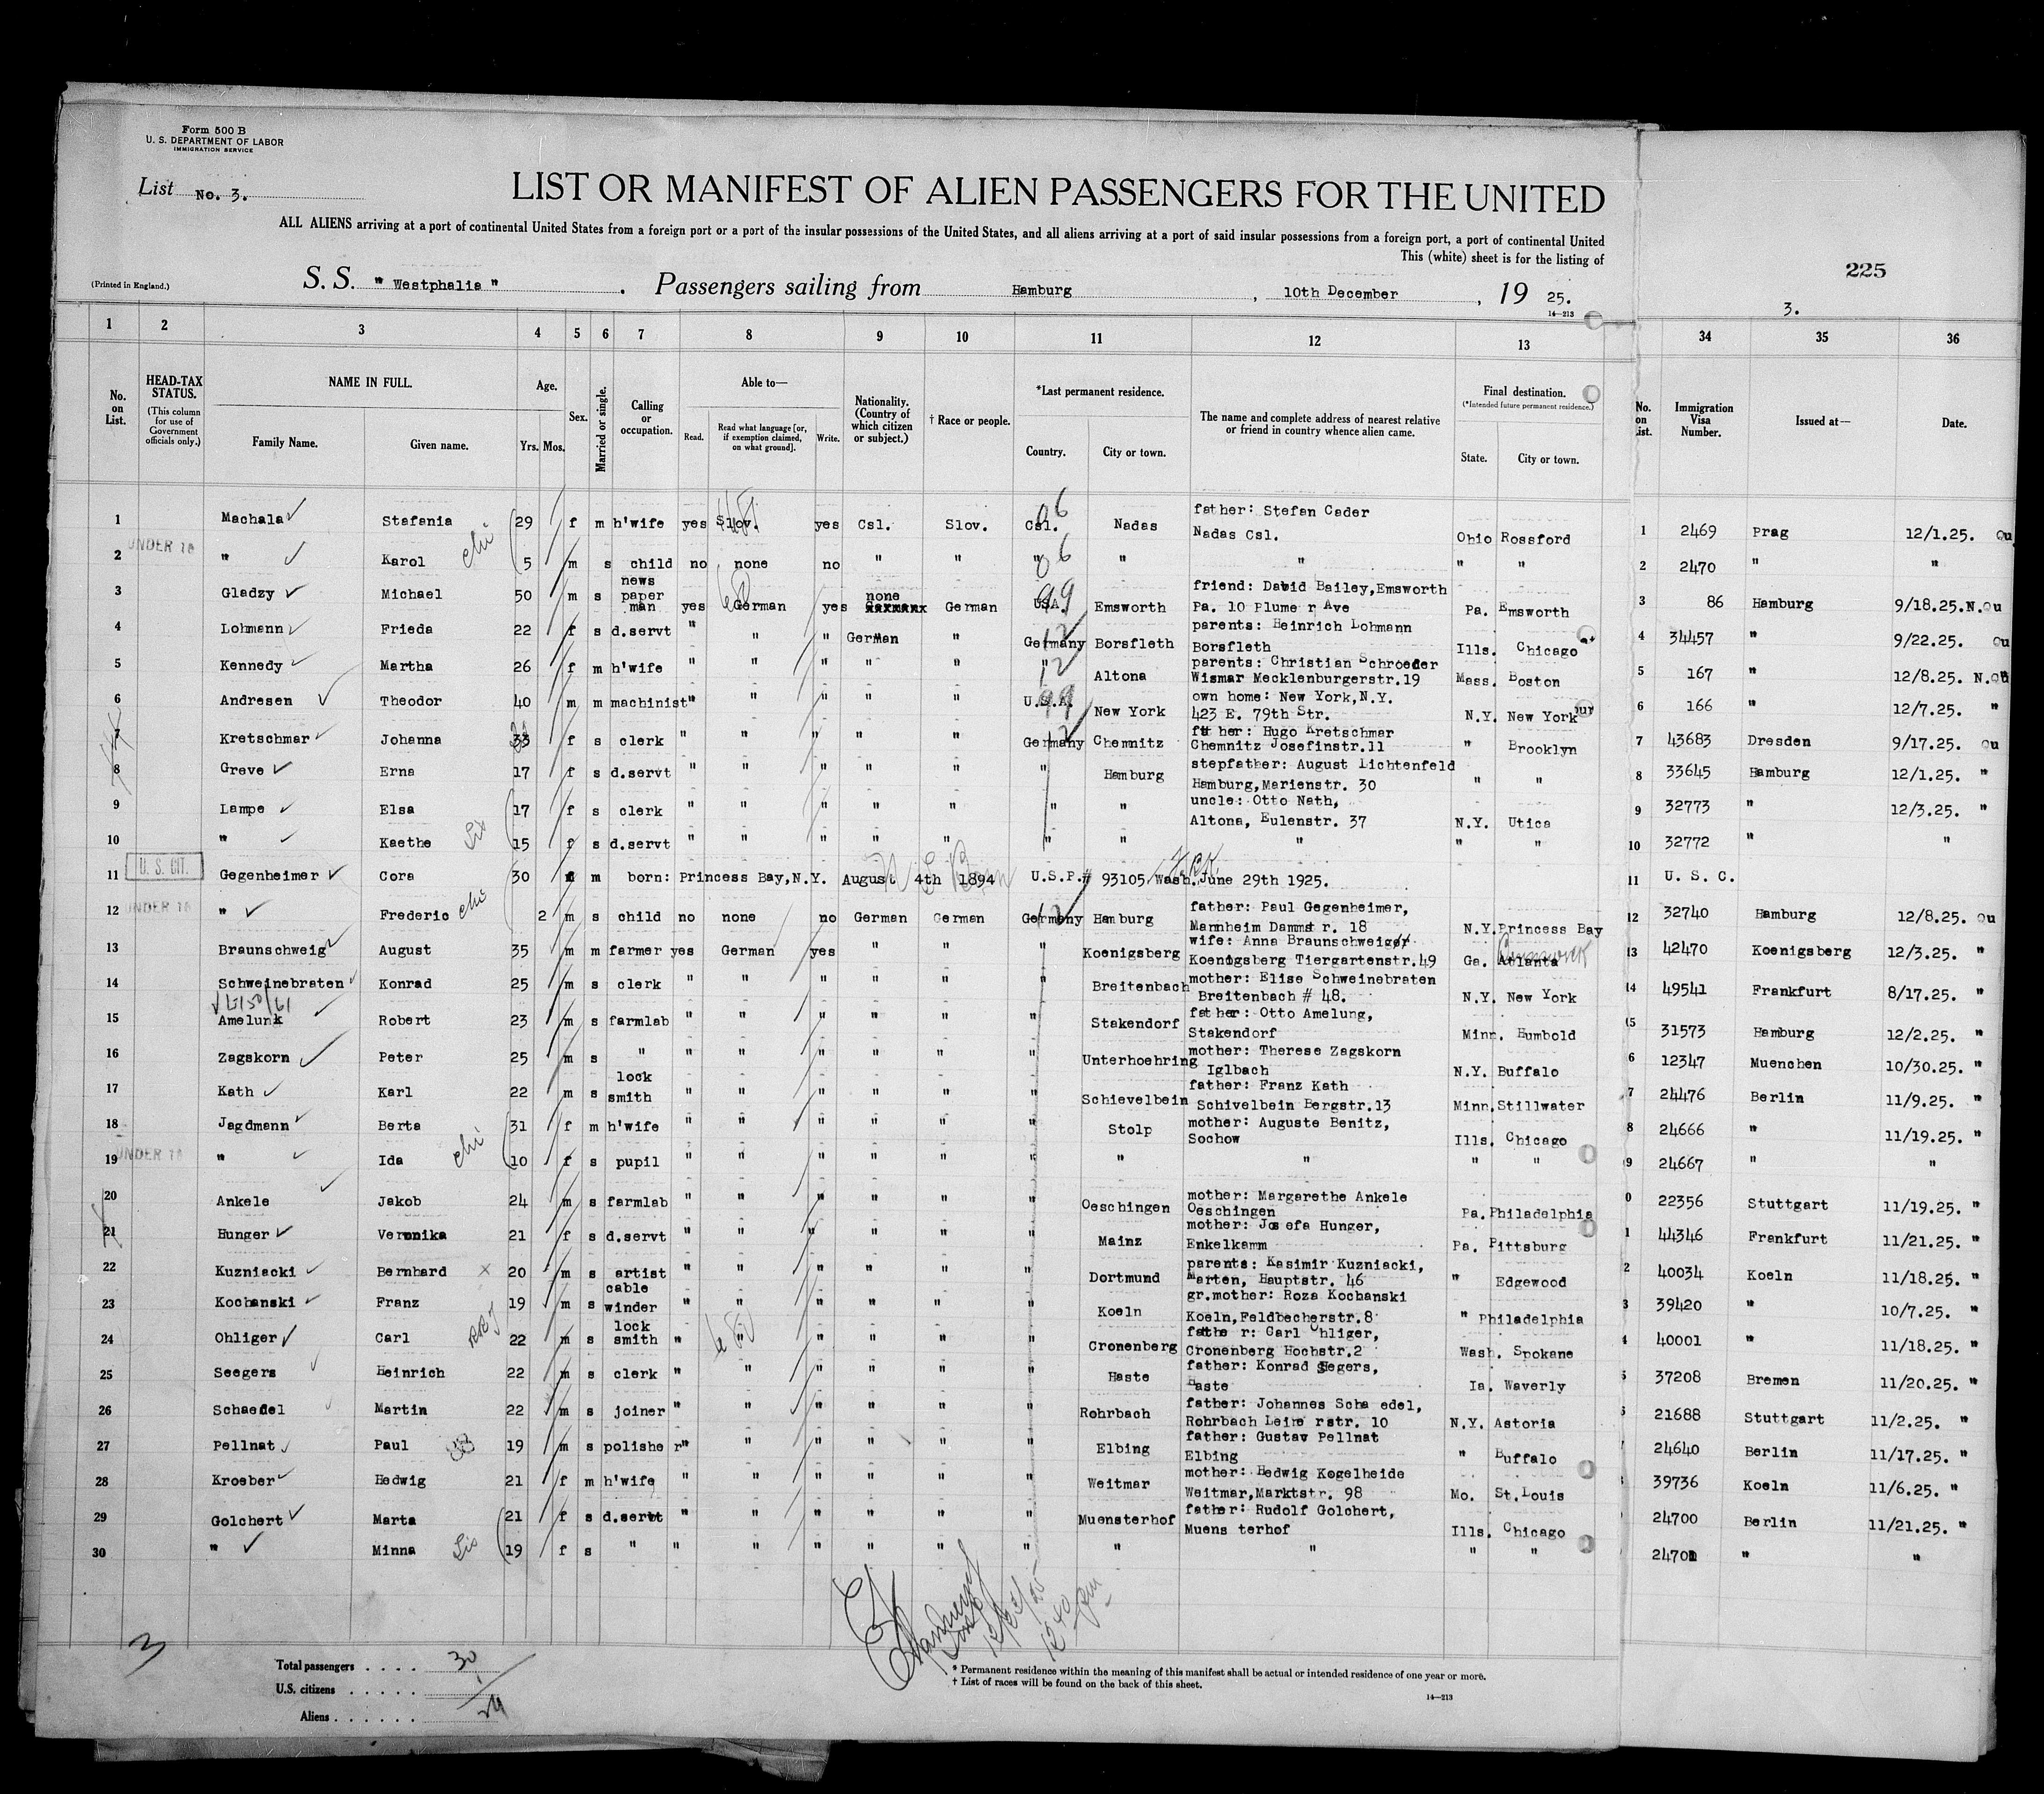 Form 500 B
U. S. DEPARTMENT OF LABOR
IMMIGRATION SERVICE
List No. 3.
LIST OR MANIFEST OF ALIEN PASSENGERS FOR THE UNITED
ALL ALIENS arriving at a port of continental United States from a foreign port or a port of the insular possessions of the United States, and all aliens arriving at a port of said insular possessions from a foreign port, a port of continental United
This (white) sheet is for the listing of
225
(Printed in England.) S. S. "Westphalia". Passengers sailing from Hamburg, 10th December, 19 25.
14—213
3.
1 2 3 4 5 6 7 8 9 10 11 12 13 34 35 36
No. on List. HEAD-TAX STATUS. (This column for use of Government officials only.) NAME IN FULL. Family Name. Given name. Age. Yrs. Mos. Sex. Married or single. Calling or occupation. Able to— Read. Read what language [or, if exemption claimed, on what ground]. Write. Nationality. (Country of which citizen or subject.) † Race or people. *Last permanent residence. Country. City or town. The name and complete address of nearest relative or friend in country whence alien came. Final destination. (*Intended future permanent residence.) State. City or town. No. on List. Immigration Visa Number. Issued at— Date.
1 Machala Stefania 29 f m h'wife yes Slov. yes Csl. Slov. Csl. 06 Nadas father: Stefan Cader Nadas Csl. Ohio Rossford 1 2469 Prag 12/1.25. Qu
2 UNDER 16 " Karol chi 5 m s child no none no " " " 06 " " " " 2 2470 " "
3 Gladzy Michael 50 m s news paper man yes German yes none German German USA. 99 Emsworth friend: David Bailey,Emsworth Pa. 10 Plume r Ave Pa. Emsworth 3 86 Hamburg 9/18.25.N.Qu
4 Lohmann Frieda 22 f s d.servt " " " German " Germany 12 Borsfleth parents: Heinrich Lohmann Borsfleth Ills. Chicago 4 34457 " 9/22.25. Qu
5 Kennedy Martha 26 f m h'wife " " " " " " 12 Altona parents: Christian Schroeder Wismar Mecklenburgerstr.19 Mass. Boston 5 167 " 12/8.25. N.Qu
6 Andresen Theodor 40 m m machinist " " " " " U.S.A. 99 New York own home: New York,N.Y. 423 E. 79th Str. N.Y. New York 6 166 " 12/7.25. "
7 Kretschmar Johanna 33 f s clerk " " " " " Germany 12 Chemnitz fat her: Hugo Kretschmar Chemnitz Josefinstr.11 " Brooklyn 7 43683 Dresden 9/17.25. Qu
8 Greve Erna 17 f s d.servt " " " " " " Hamburg stepfather: August Lichtenfeld Hamburg,Marienstr. 30 " " 8 33645 Hamburg 12/1.25. "
9 Lampe Elsa 17 f s clerk " " " " " " " uncle: Otto Nath, Altona, Eulenstr. 37 N.Y. Utica 9 32773 " 12/3.25. "
10 " Kaethe Sis 15 f s d.servt " " " " " " " " " " 10 32772 " "
11 U. S. CIT. Gegenheimer Cora 30 f m born: Princess Bay,N.Y. August 4th 1894 U.S.P.# 93105 Wash.June 29th 1925. 11 U. S. C.
12 UNDER 16 " Frederic chi 2 m s child no none no German German Germany 12 Hamburg father: Paul Gegenheimer, Mannheim Dammst r. 18 N.Y.Princess Bay 12 32740 Hamburg 12/8.25. Qu
13 Braunschweig August 35 m m farmer yes German yes " " " Koenigsberg wife: Anna Braunschweiger Koenigsberg Tiergartenstr.49 Ga. Atlanta 13 42470 Koenigsberg 12/3.25. "
14 Schweinebraten Konrad 25 m s clerk " " " " " " Breitenbach mother: Elise Schweinebraten Breitenbach # 48. N.Y. New York 14 49541 Frankfurt 8/17.25. "
15 Amelunk Robert 23 m s farmlab " " " " " " Stakendorf fat her: Otto Amelung, Stakendorf Minn. Humbold 15 31573 Hamburg 12/2.25. "
16 Zagskorn Peter 25 m s " " " " " " " Unterhoehring mother: Therese Zagskorn Iglbach N.Y. Buffalo 6 12347 Muenchen 10/30.25. "
17 Kath Karl 22 m s lock smith " " " " " " Schievelbein father: Franz Kath Schivelbein Bergstr.13 Minn.Stillwater 7 24476 Berlin 11/9.25. "
18 Jagdmann Berta 31 f m h'wife " " " " " " Stolp mother: Auguste Benitz, Sochow Ills. Chicago 8 24666 " 11/19.25. "
19 UNDER 16 " Ida chi 10 f s pupil " " " " " " " " " " 9 24667 " "
20 Ankele Jakob 24 m s farmlab " " " " " " Oeschingen mother: Margarethe Ankele Oeschingen Pa. Philadelphia 0 22356 Stuttgart 11/19.25. "
21 Hunger Veronika 21 f s d.servt " " " " " " Mainz mother: Jos efa Hunger, Enkelkamm Pa. Pittsburg 1 44346 Frankfurt 11/21.25. "
22 Kuzniacki Bernhard x 20 m s artist " " " " " " Dortmund parents: Kasimir Kuzniacki, Marten, Hauptstr. 46 " Edgewood 2 40034 Koeln 11/18.25. "
23 Kochanski Franz 19 m s cable winder " " " " " " Koeln gr.mother: Roza Kochanski Koeln,Feldbecherstr.8 " Philadelphia 3 39420 " 10/7.25. "
24 Ohliger Carl 22 m s lock smith " " " " " " Cronenberg fathe r: Carl Ohliger, Cronenberg Hochstr.2 Wash. Spokane 4 40001 " 11/18.25. "
25 Seegers Heinrich 22 m s clerk " " " " " " Haste father: Konrad Segers, Haste Ia. Waverly 5 37208 Bremen 11/20.25. "
26 Schaedel Martin 22 m s joiner " " " " " " Rohrbach father: Johannes Scha edel, Rohrbach Leime rstr. 10 N.Y. Astoria 21688 Stuttgart 11/2.25. "
27 Pellnat Paul 19 m s polishe r " " " " " " Elbing father: Gustav Pellnat Elbing " Buffalo 24640 Berlin 11/17.25. "
28 Kroeber Hedwig 21 f m h'wife " " " " " " Weitmar mother: Hedwig Kogelheide Weitmar,Marktstr. 98 Mo. St.Louis 39736 Koeln 11/6.25. "
29 Golchert Marta 21 f s d.servt " " " " " " Muensterhof father: Rudolf Golchert, Muens terhof Ills. Chicago 24700 Berlin 11/21.25. "
30 " Minna Sis 19 f s " " " " " " " " " " " 24701 " "
3
Total passengers . . . . 30
U.S. citizens . . . . . 1
Aliens . . . . . . 29
12/23/25
12 40 pm
* Permanent residence within the meaning of this manifest shall be actual or intended residence of one year or more.
† List of races will be found on the back of this sheet.
14—213